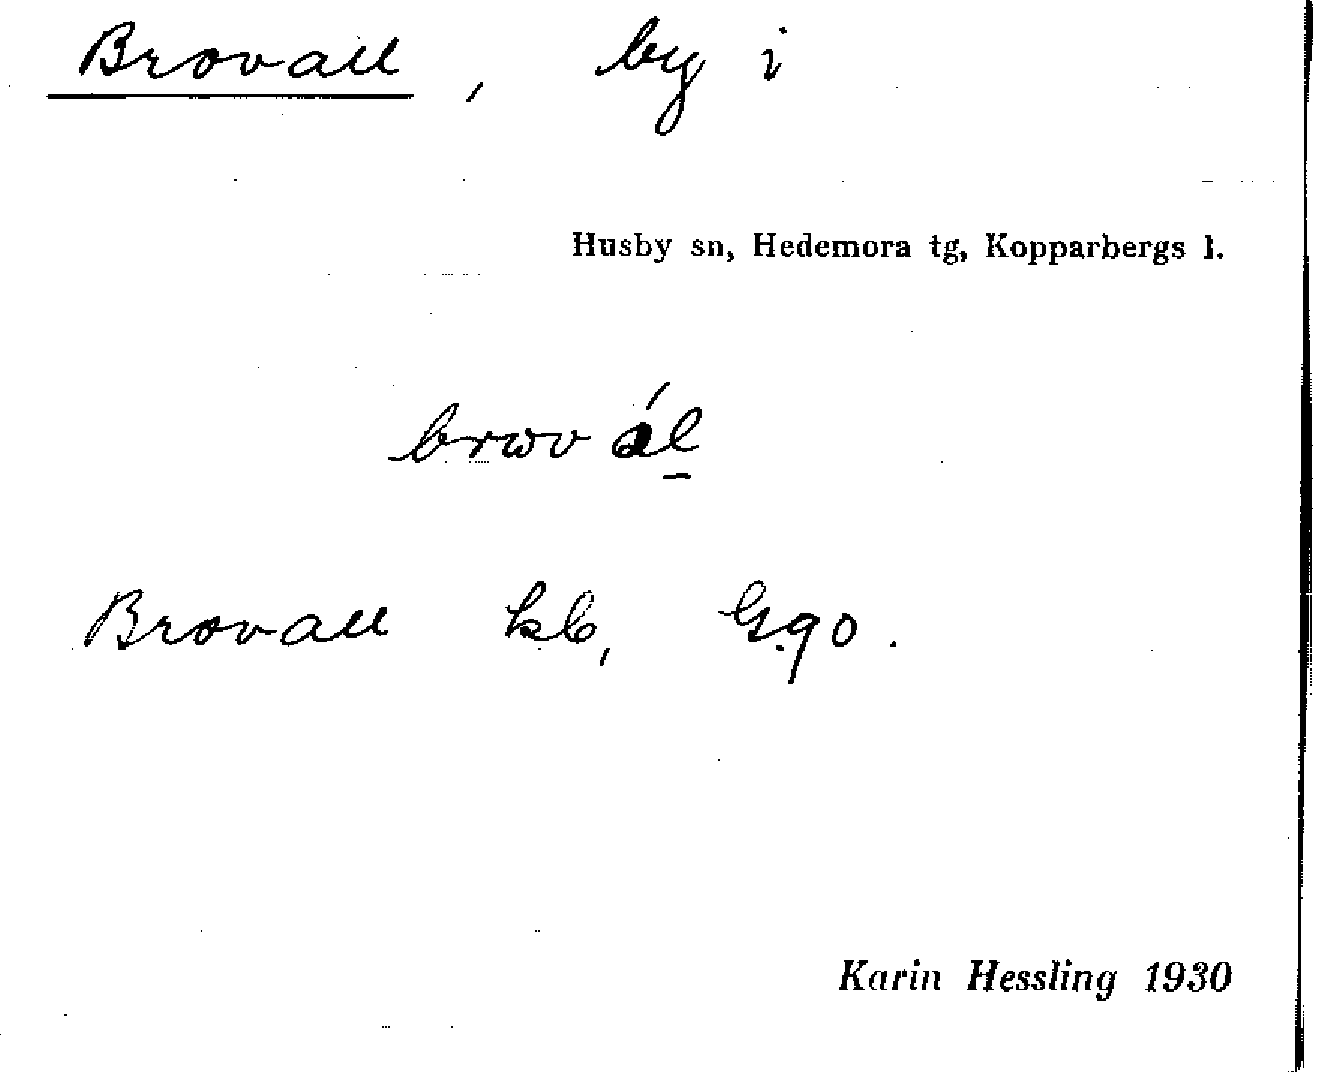 Brovall, by i
Husby sn, Hedemora tg, Kopparbergs l.
brωvál̠
Brovall kb, G.qo.
Karin Hessling 1930